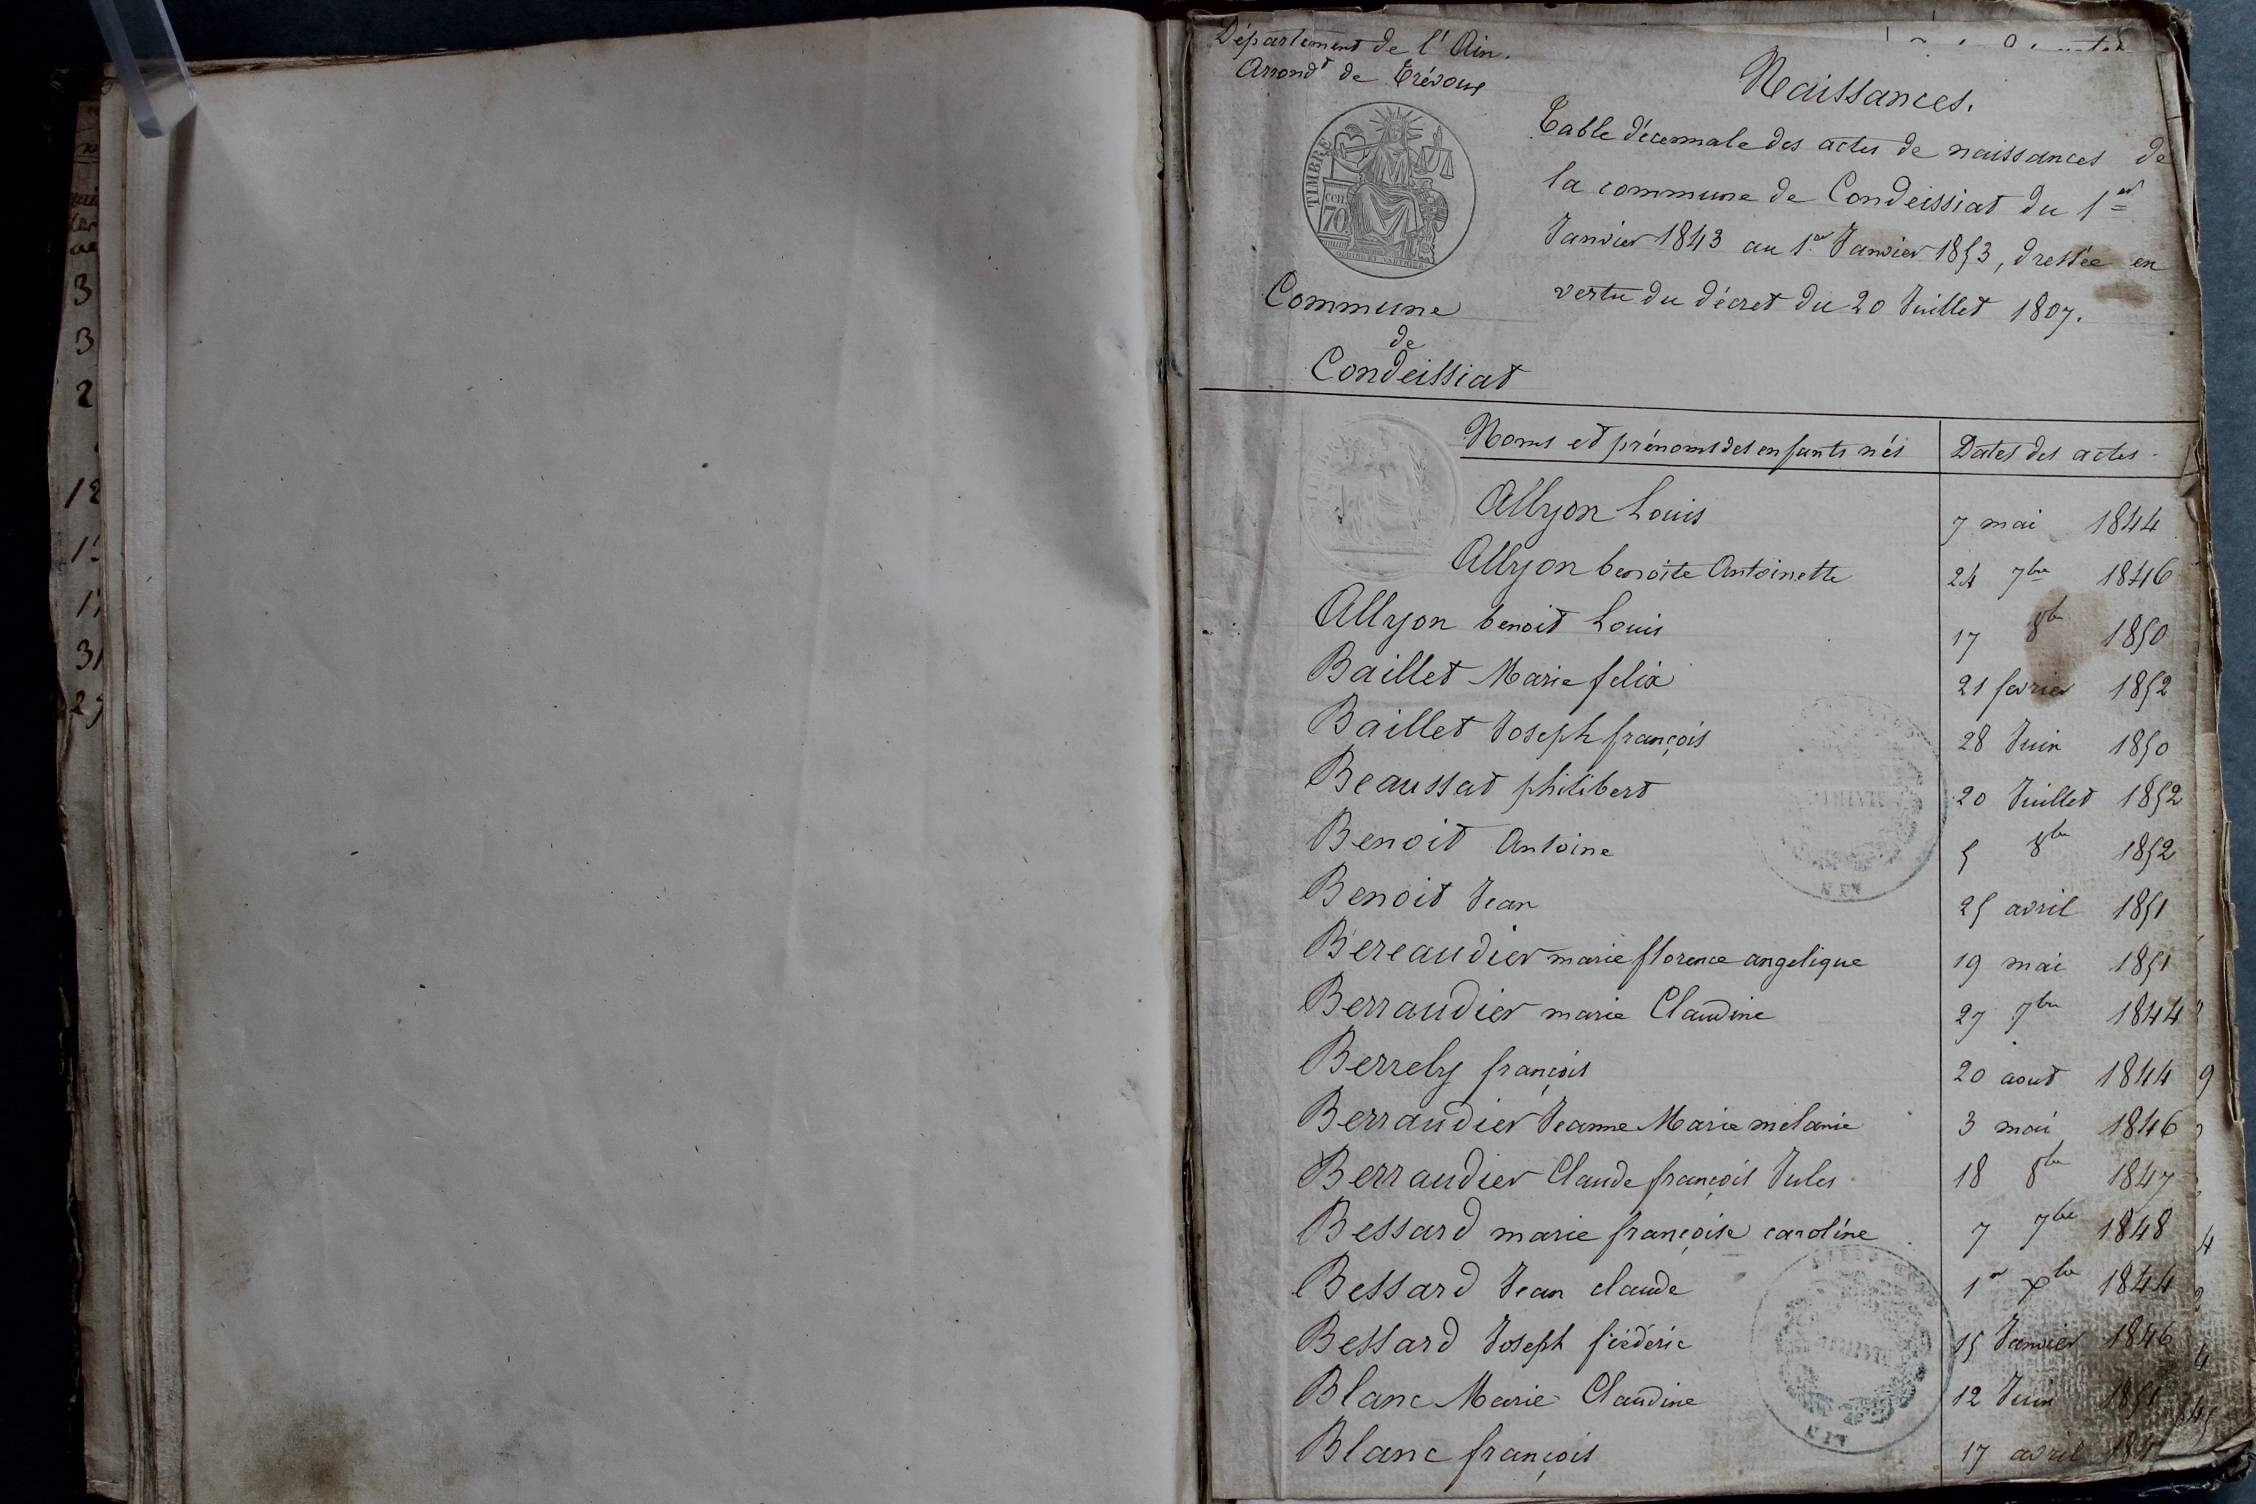 Département de l'Ain.
Arrond.t de Trévoux
TIMBRE
cen
70
Commune
de
Condeissiat
Naissances.
Table décennale des actes de naissances de
la commune de Condeissiat du 1er
Janvier 1843 au 1er Janvier 1853, dressée en
vertu du décret du 20 Juillet 1807.
Noms et prénoms des enfants nés Dates des actes.
Allyon Louis 7 mai 1844
Allyon benoite Antoinette 24 7bre 1846
Allyon benoit Louis 17 8bre 1850
Baillet Marie felix 21 fevrier 1852
Baillet Joseph françois 28 Juin 1850
Beaussat philibert 20 Juillet 1852
Benoit Antoine 5 8bre 1852
Benoit Jean 25 avril 1851
Bereaudier marie florence angelique 19 mai 1851
Berraudier marie Claudine 27 7bre 1844
Berrely françois 20 aout 1844
Berraudier Jeanne Marie mélanie 3 mai 1846
Berraudier Claude françois Jules 18 8bre 1847
Bessard marie françoise caroline 7 7bre 1848
Bessard Jean claude 1er Xbre 1844
Bessard Joseph fréderic 15 Janvier 1846
Blanc Marie Claudine 12 Juin 1851
Blanc françois 17 avril